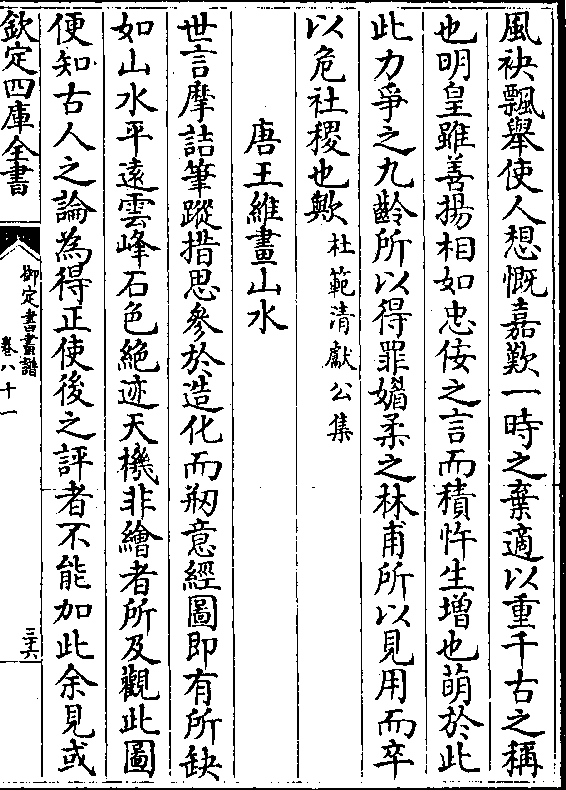 風袂飄舉使人想慨嘉歎一時之棄適以重千古之稱
也明皇雖善揚相如忠佞之言而積忤生增也萌於此
此力爭之九齡所以得罪媚柔之林甫所以見用而卒
以危社稷也歟杜範清獻公集
唐王維畫山水
世言摩詰筆蹤措思參於造化而剏意經圖即有所缺
如山水平遠雲峰石色絕迹天機非繪者所及觀此圖
便知古人之論為得正使後之評者不能加此余見或
欽定四庫全書
御定書畫譜
卷八十一
三六